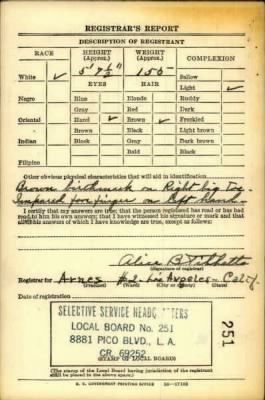 REGISTRAR'S REPORT
DESCRIPTION OF REGISTRANT
RACE HEIGHT (Approx.) WEIGHT (Approx.) COMPLEXION
5' 7 1/2" 155 Sallow
White ✓ EYES HAIR Light ✓
Negro Blue Blonde Ruddy
Gray Red Dark
Oriental Hazel ✓ Brown ✓ Freckled
Brown Black Light brown
Indian Black Gray Dark brown
Bald Black
Filipino
Other obvious physical characteristics that will aid in identification
Brown birthmark on Right big Toe
Impared forfinger on Left hand
I certify that my answers are true; that the person registered has read or has had
read to him his own answers; that I have witnessed his signature or mark and that
all of his answers of which I have knowledge are true, except as follows:
Alice B.
(Signature of registrar)
Registrar for #2- Los Angeles - Calif.
(Precinct) (Ward) (City or County) (State)
Date of registration
SELECTIVE SERVICE HEADQUARTERS
LOCAL BOARD No. 251
8881 PICO BLVD., L. A.
CR 69252
(STAMP OF LOCAL BOARD)
251
(The stamp of the Local Board having jurisdiction of the registrant
shall be placed in the above space.)
U. S. GOVERNMENT PRINTING OFFICE 16-17105